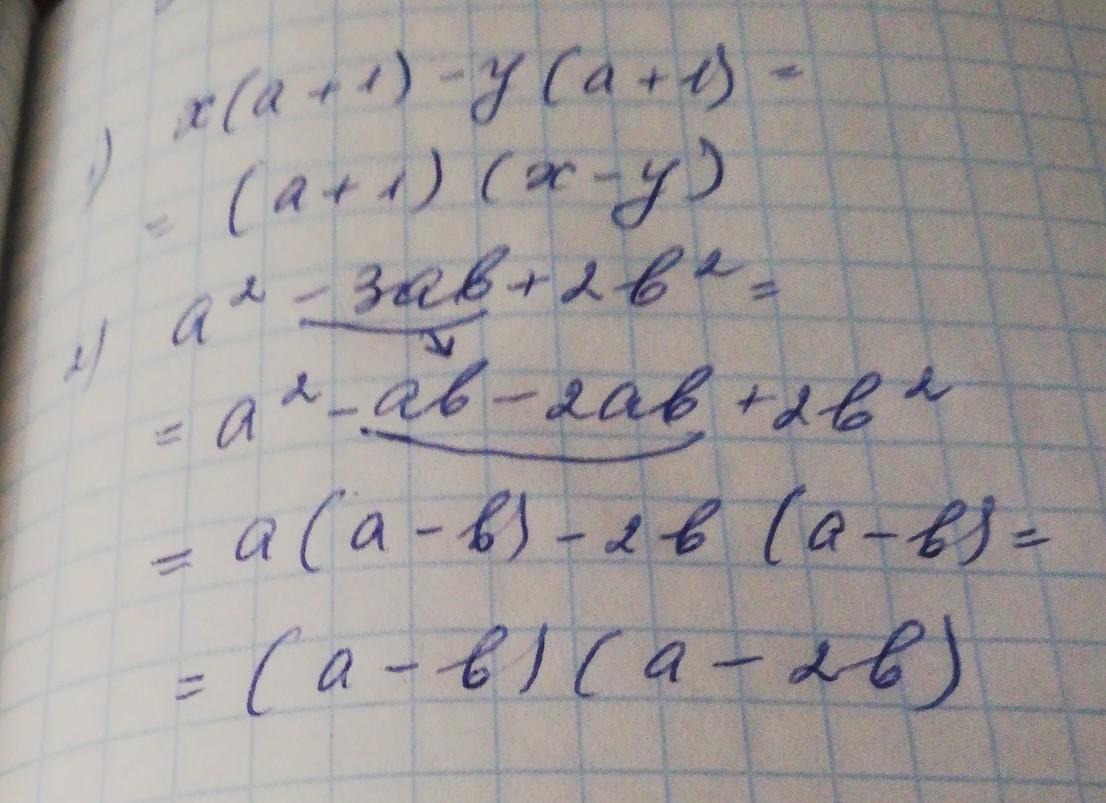 1) x(a+1)-y(a+1)=
=(a+1)(x-y)
2) a²-3ab+2b²=
=a²-ab-2ab+2b²
=a(a-b)-2b(a-b)=
=(a-b)(a-2b)